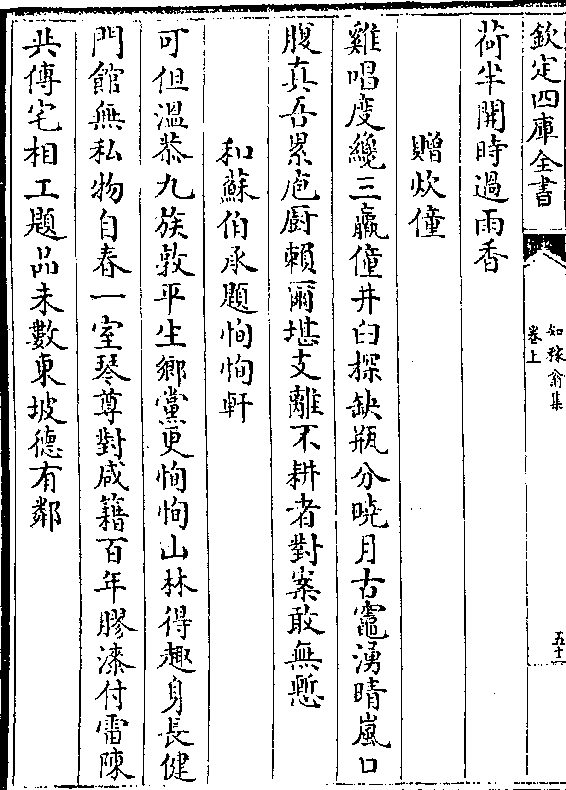 欽定四庫全書
如稼翁集
卷上
五十一
荷半開時過雨香
贈炊僮
雞唱度纔三羸僮井臼探缺瓶分曉月古竈湧晴嵐口
腹真吾累庖廚賴爾堪支離不耕者對案敢無慙
和蘇伯承題恂恂軒
可但溫恭九族敦平生鄉黨更恂恂山林得趣身長健
門館無私物自春一室琴尊對咸籍百年膠漆付雷陳
共傳宅相工題品未數東坡德有鄰